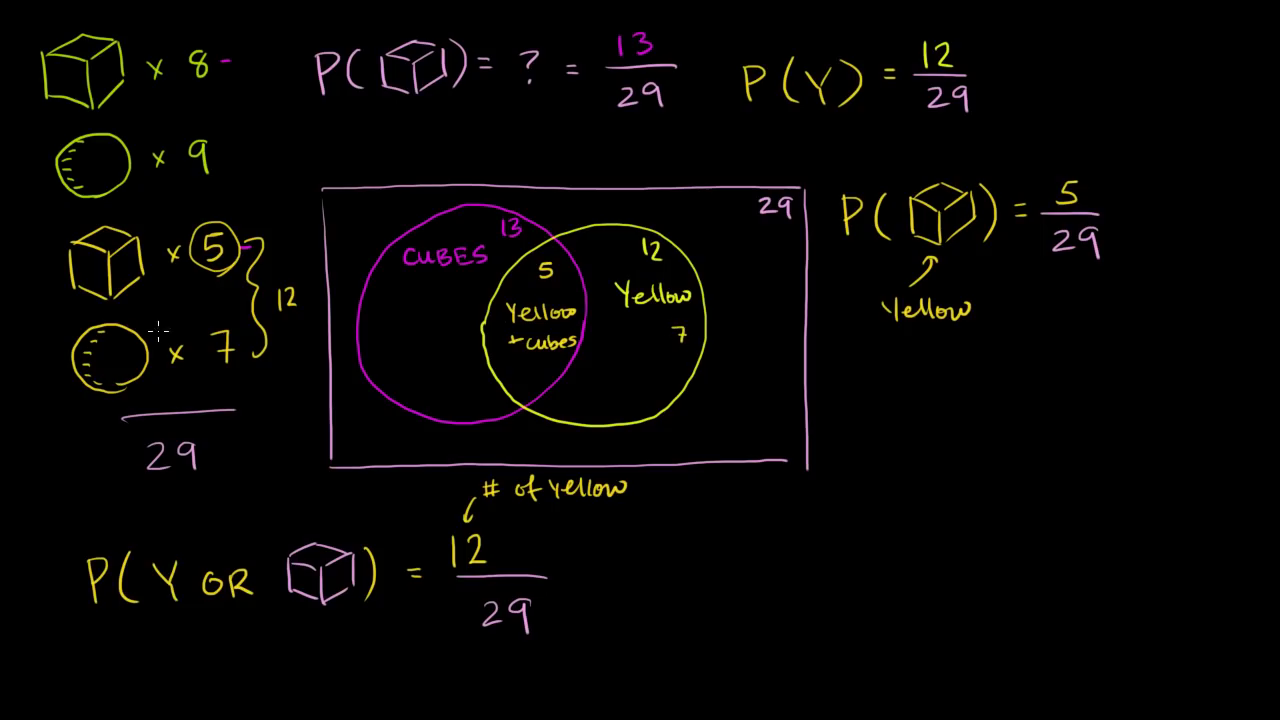 × 8 -
P( ) = ? = 13/29
P(Y) = 12/29
× 9
× 5
× 7
12
29
29
CUBES 13
5
Yellow
+ cubes
12
Yellow
7
P( ) = 5/29
Yellow
# of Yellow
P(Y OR ) = 12/29